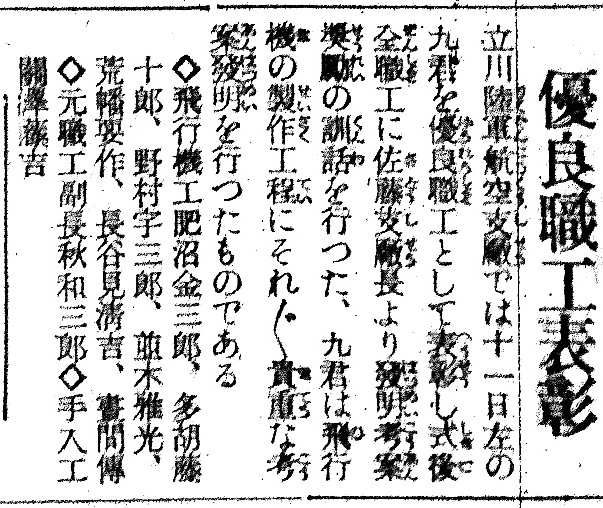 優良職工表彰
立川陸軍航空支廠では十一日左の
九君を優良職工として表彰し式後
全職工に佐藤支廠長より發明考案
奬勵の訓話を行つた、九君は飛行
機の製作工程にそれ〴〵貴重な考
案發明を行つたものである
◇飛行機工肥沼金三郎、多胡藤
十郎、野村宇三郎、並木雅光、
荒幡要作、長谷見淸吉、晝間傳
◇元職工副長秋和三郎◇手入工
關澤藤吉